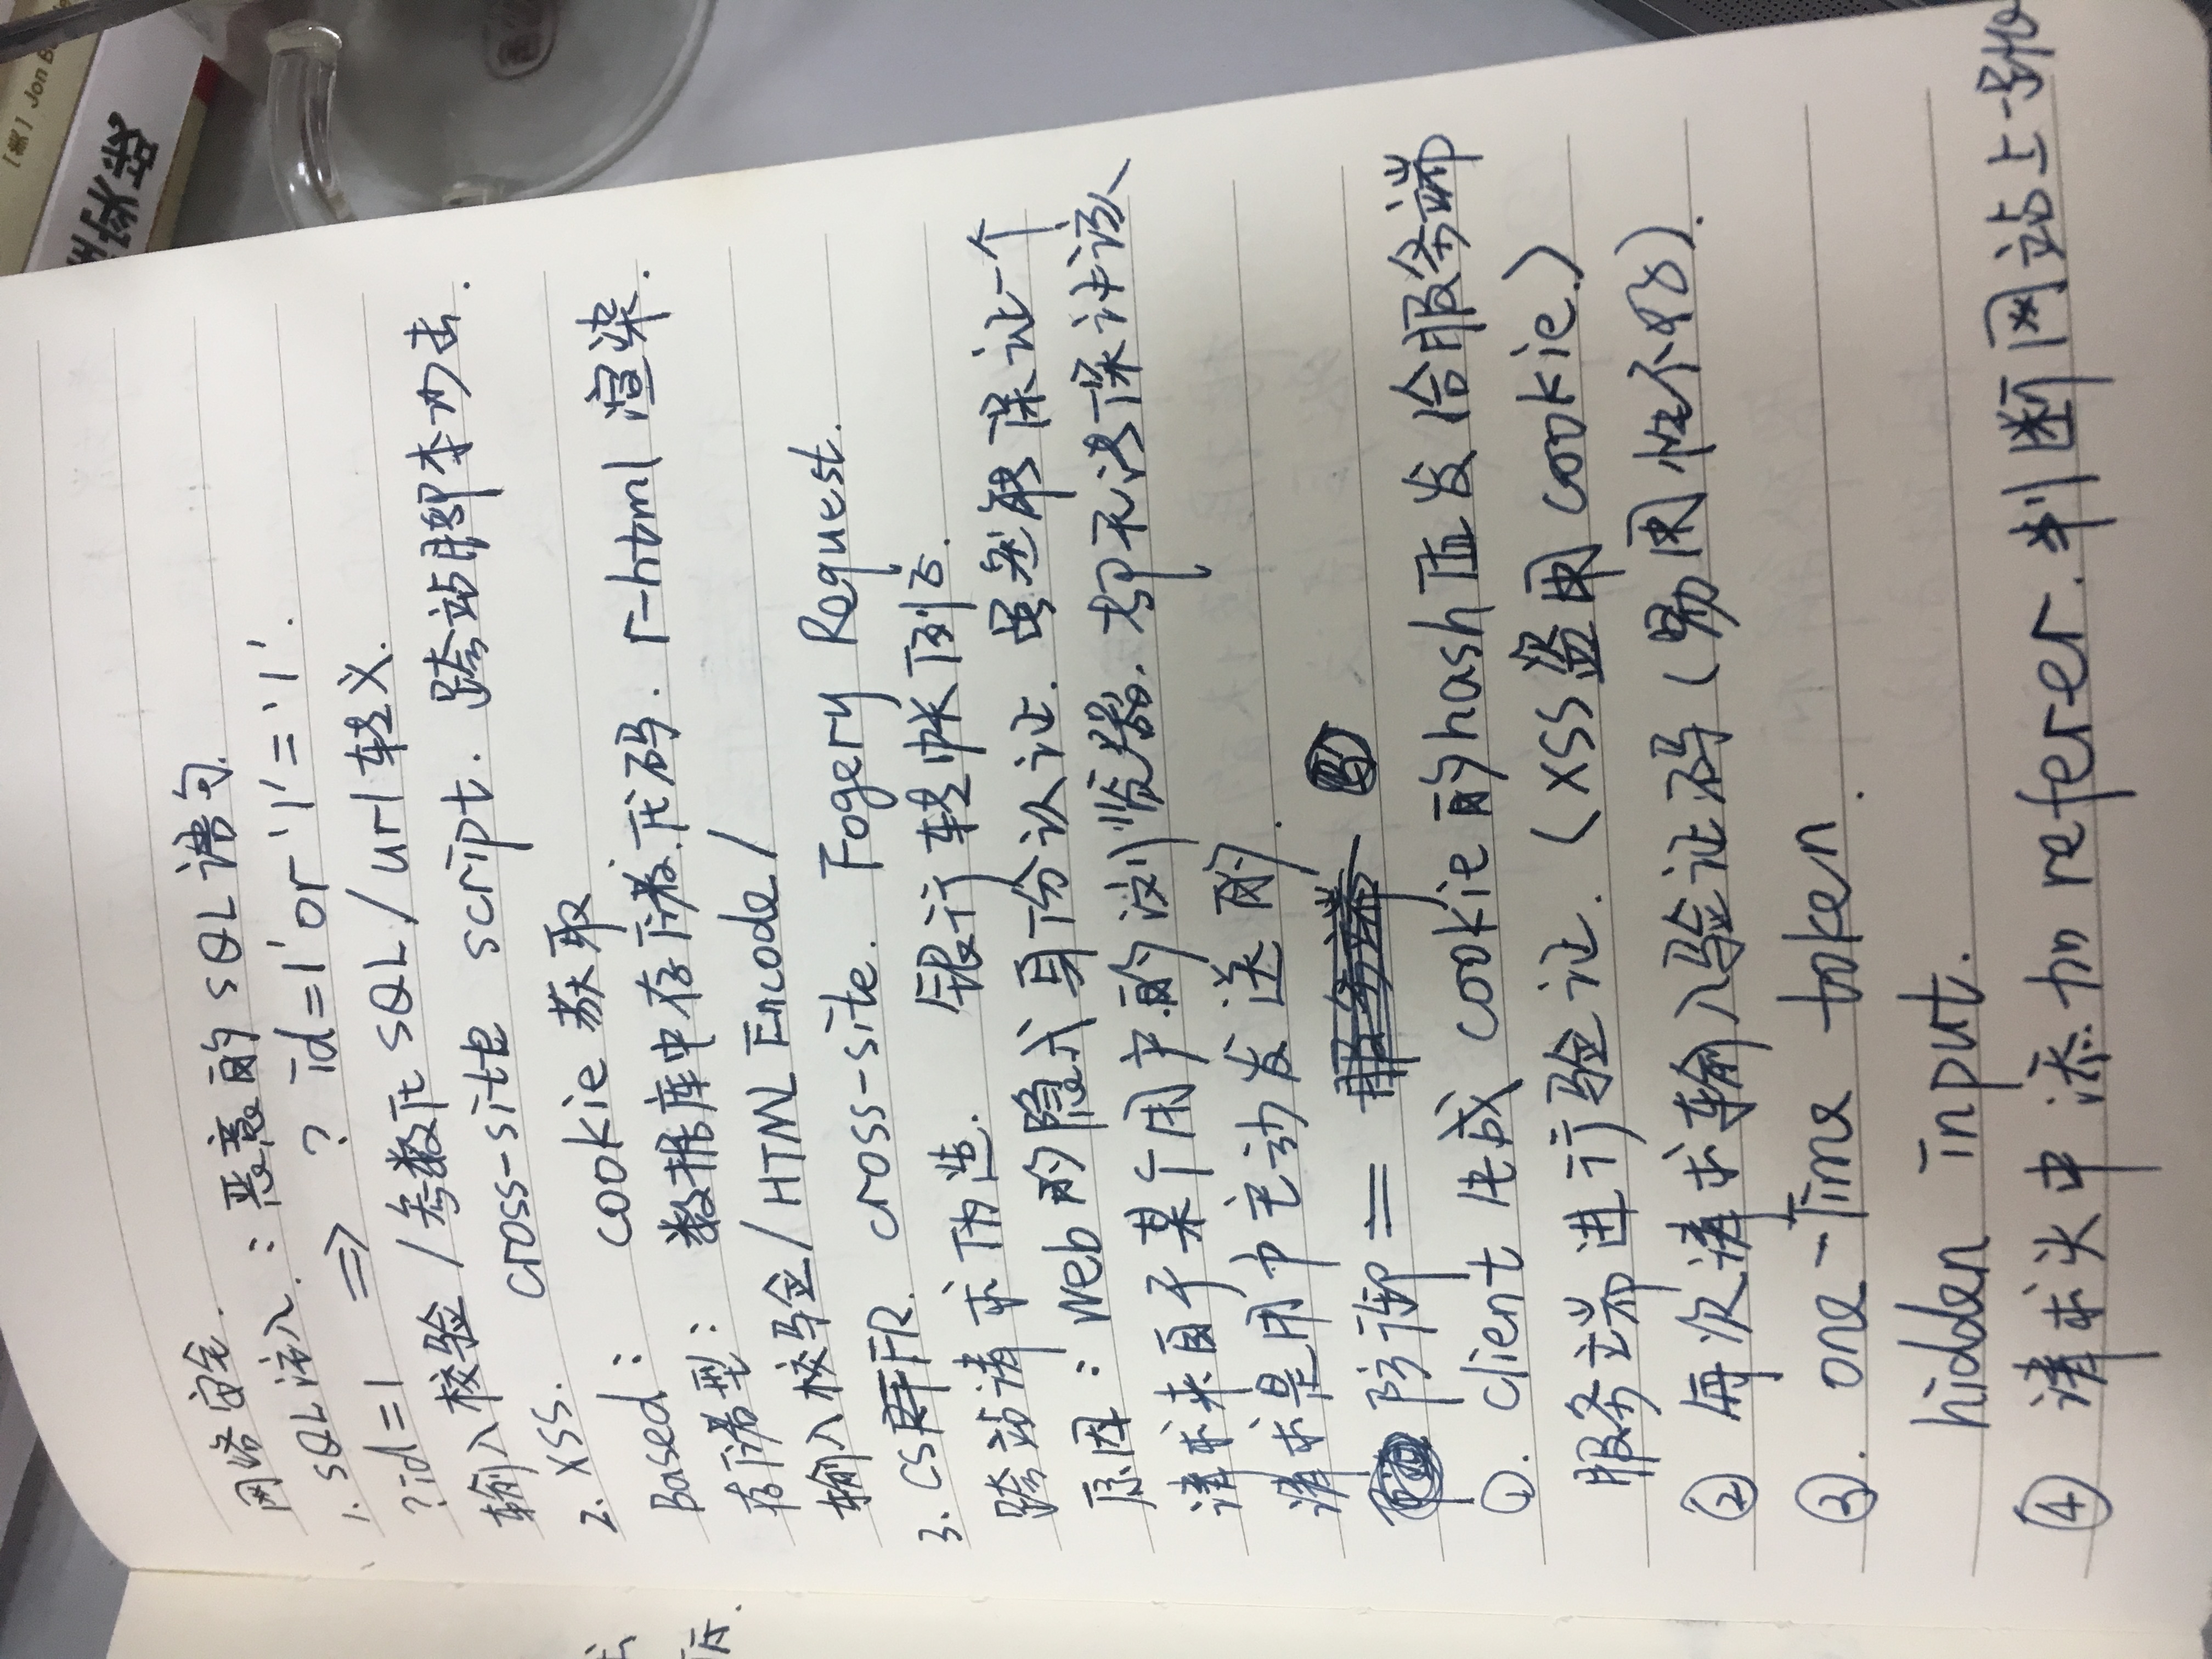 网络安全.
1. SQL注入.：恶意的 SQL 语句.
?id=1 => ? id=1' or '1'='1'.
输入校验/参数化SQL/url转义.
2. XSS. cross-site script. 跨站脚本功击.
Based： cookie获取
存储型： 数据库中存储代码. r-html 渲染.
输入校验/HTML Encode/
3. CSFR. cross-site. Fogery Request.
跨站请求伪造. 银行转帐例子.
原因：Web的隐式身份认证. 虽然能保证一个
请求来自于某个用户的浏览器. 却无法保证该
请求是用户主动发送的.
防御= 服务端
①. client 生成 cookie 的hash值发给服务端
服务端进行验证. (XSS盗用 cookie.)
② 每次请求输入验证码 (易用性不好).
③. one-Time token.
hidden input.
④ 请求头中添加 referer. 判断网站上一
[黑] Jon
实战